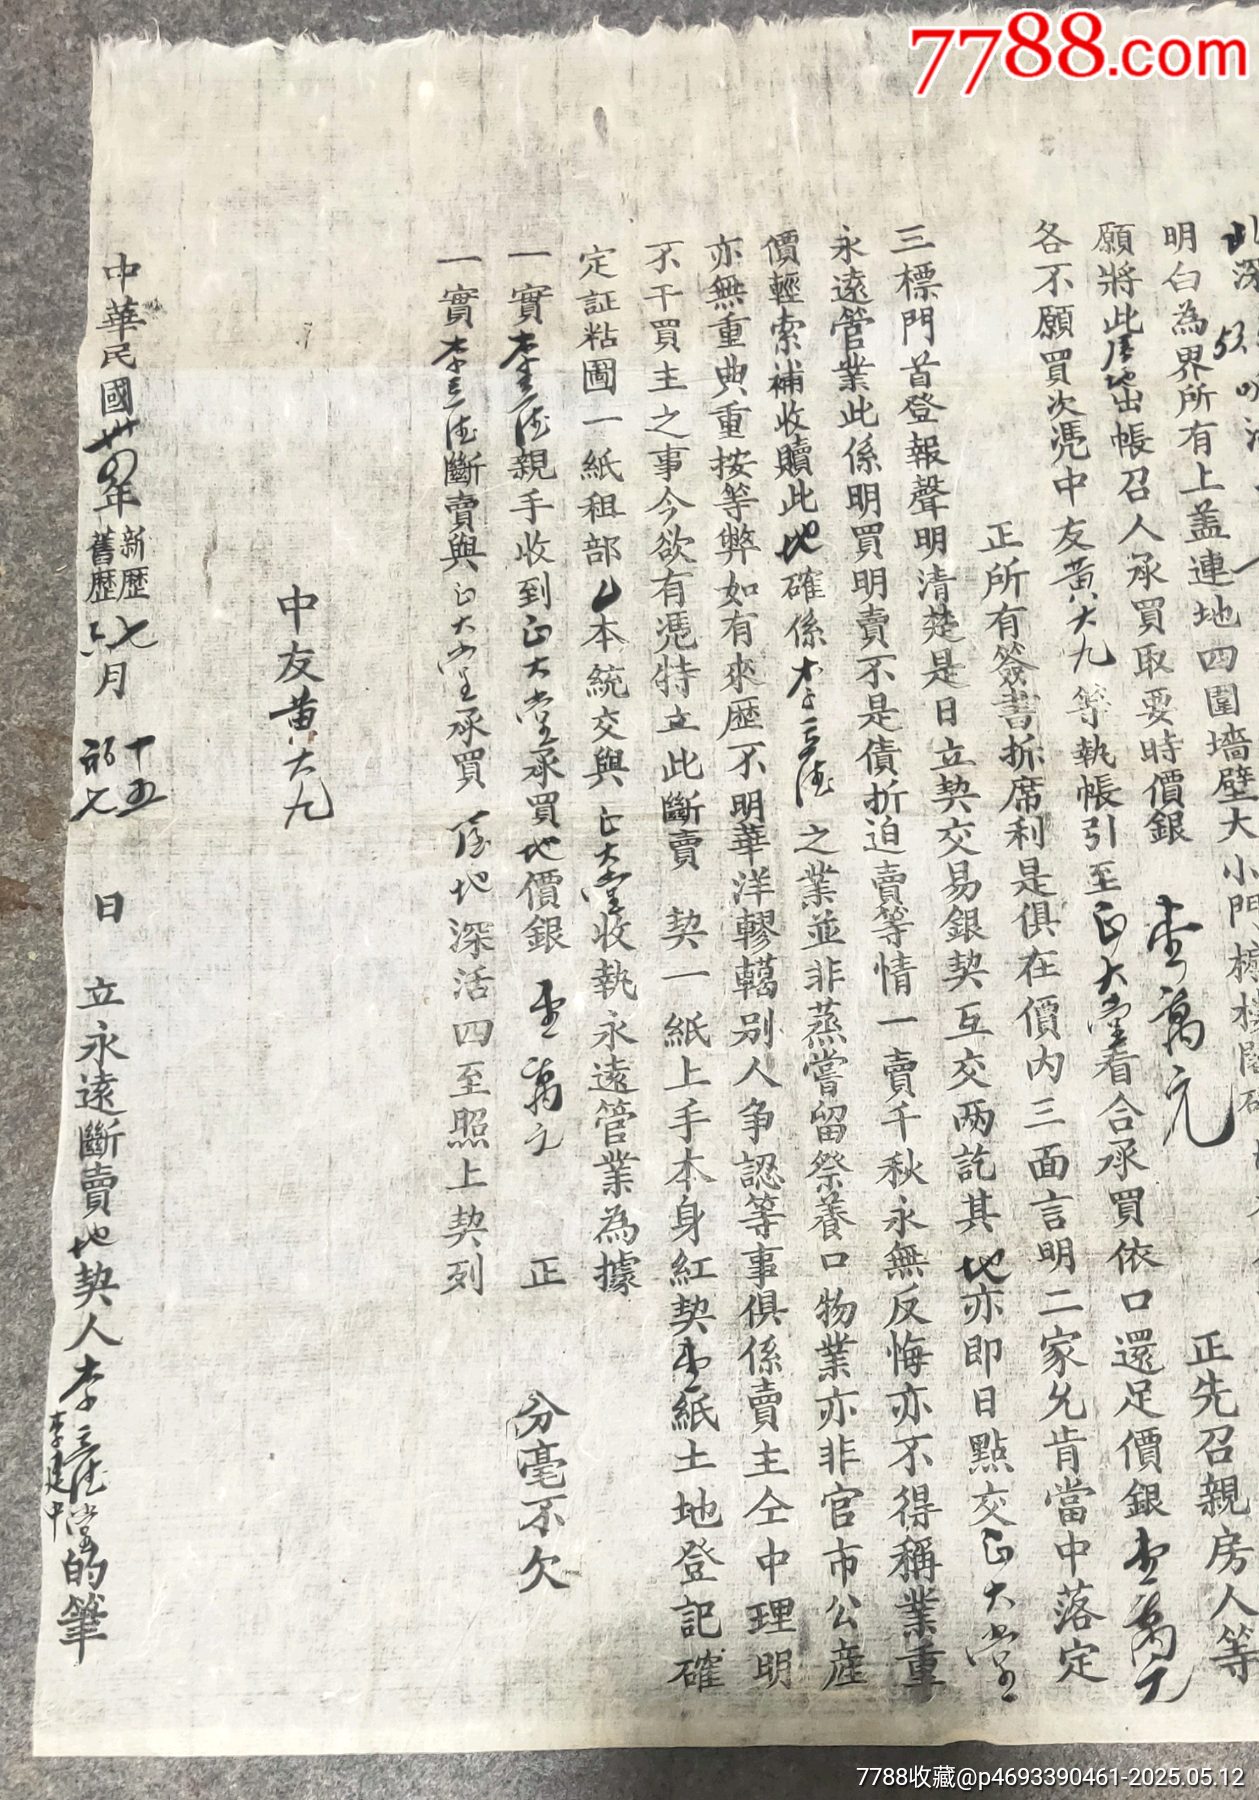 7788.com
明白為界所有上盖連地四圍墻壁大小門
正先召親房人等
願將此店地出帳召人承買取要時價銀 壹萬元
各不願買次憑中友黃大九等執帳引至正大堂看合承買依口還足價銀壹萬元
正所有簽書折席利是俱在價内三面言明二家允肯當中落定
三標門首登報聲明清楚是日立契交易銀契互交两訖其地亦即日點交正大堂
永遠管業此係明買明賣不是債折迫賣等情一賣千秋永無反悔亦不得稱業重
價輕索補收贖此地確係李三德之業並非蒸嘗留祭養口物業亦非官市公產
亦無重典重按等弊如有來歷不明華洋轇轕别人争認等事俱係賣主仝中理明
不干買主之事今欲有憑特立此斷賣 契一紙上手本身紅契壹紙土地登記確
定証粘圖一紙租部乙本統交與正大堂收執永遠管業為據
一實李三德親手收到正大堂承買地價銀 壹萬元 正 分毫不欠
一實李三德斷賣與正大堂承買 店地深活四至照上契列
中友黃大九
中華民國卅四年 新歷七 舊歷六 月 十五 初七 日 立永遠斷賣地契人李三德堂的筆
李建中
7788收藏@p4693390461-2025.05.12